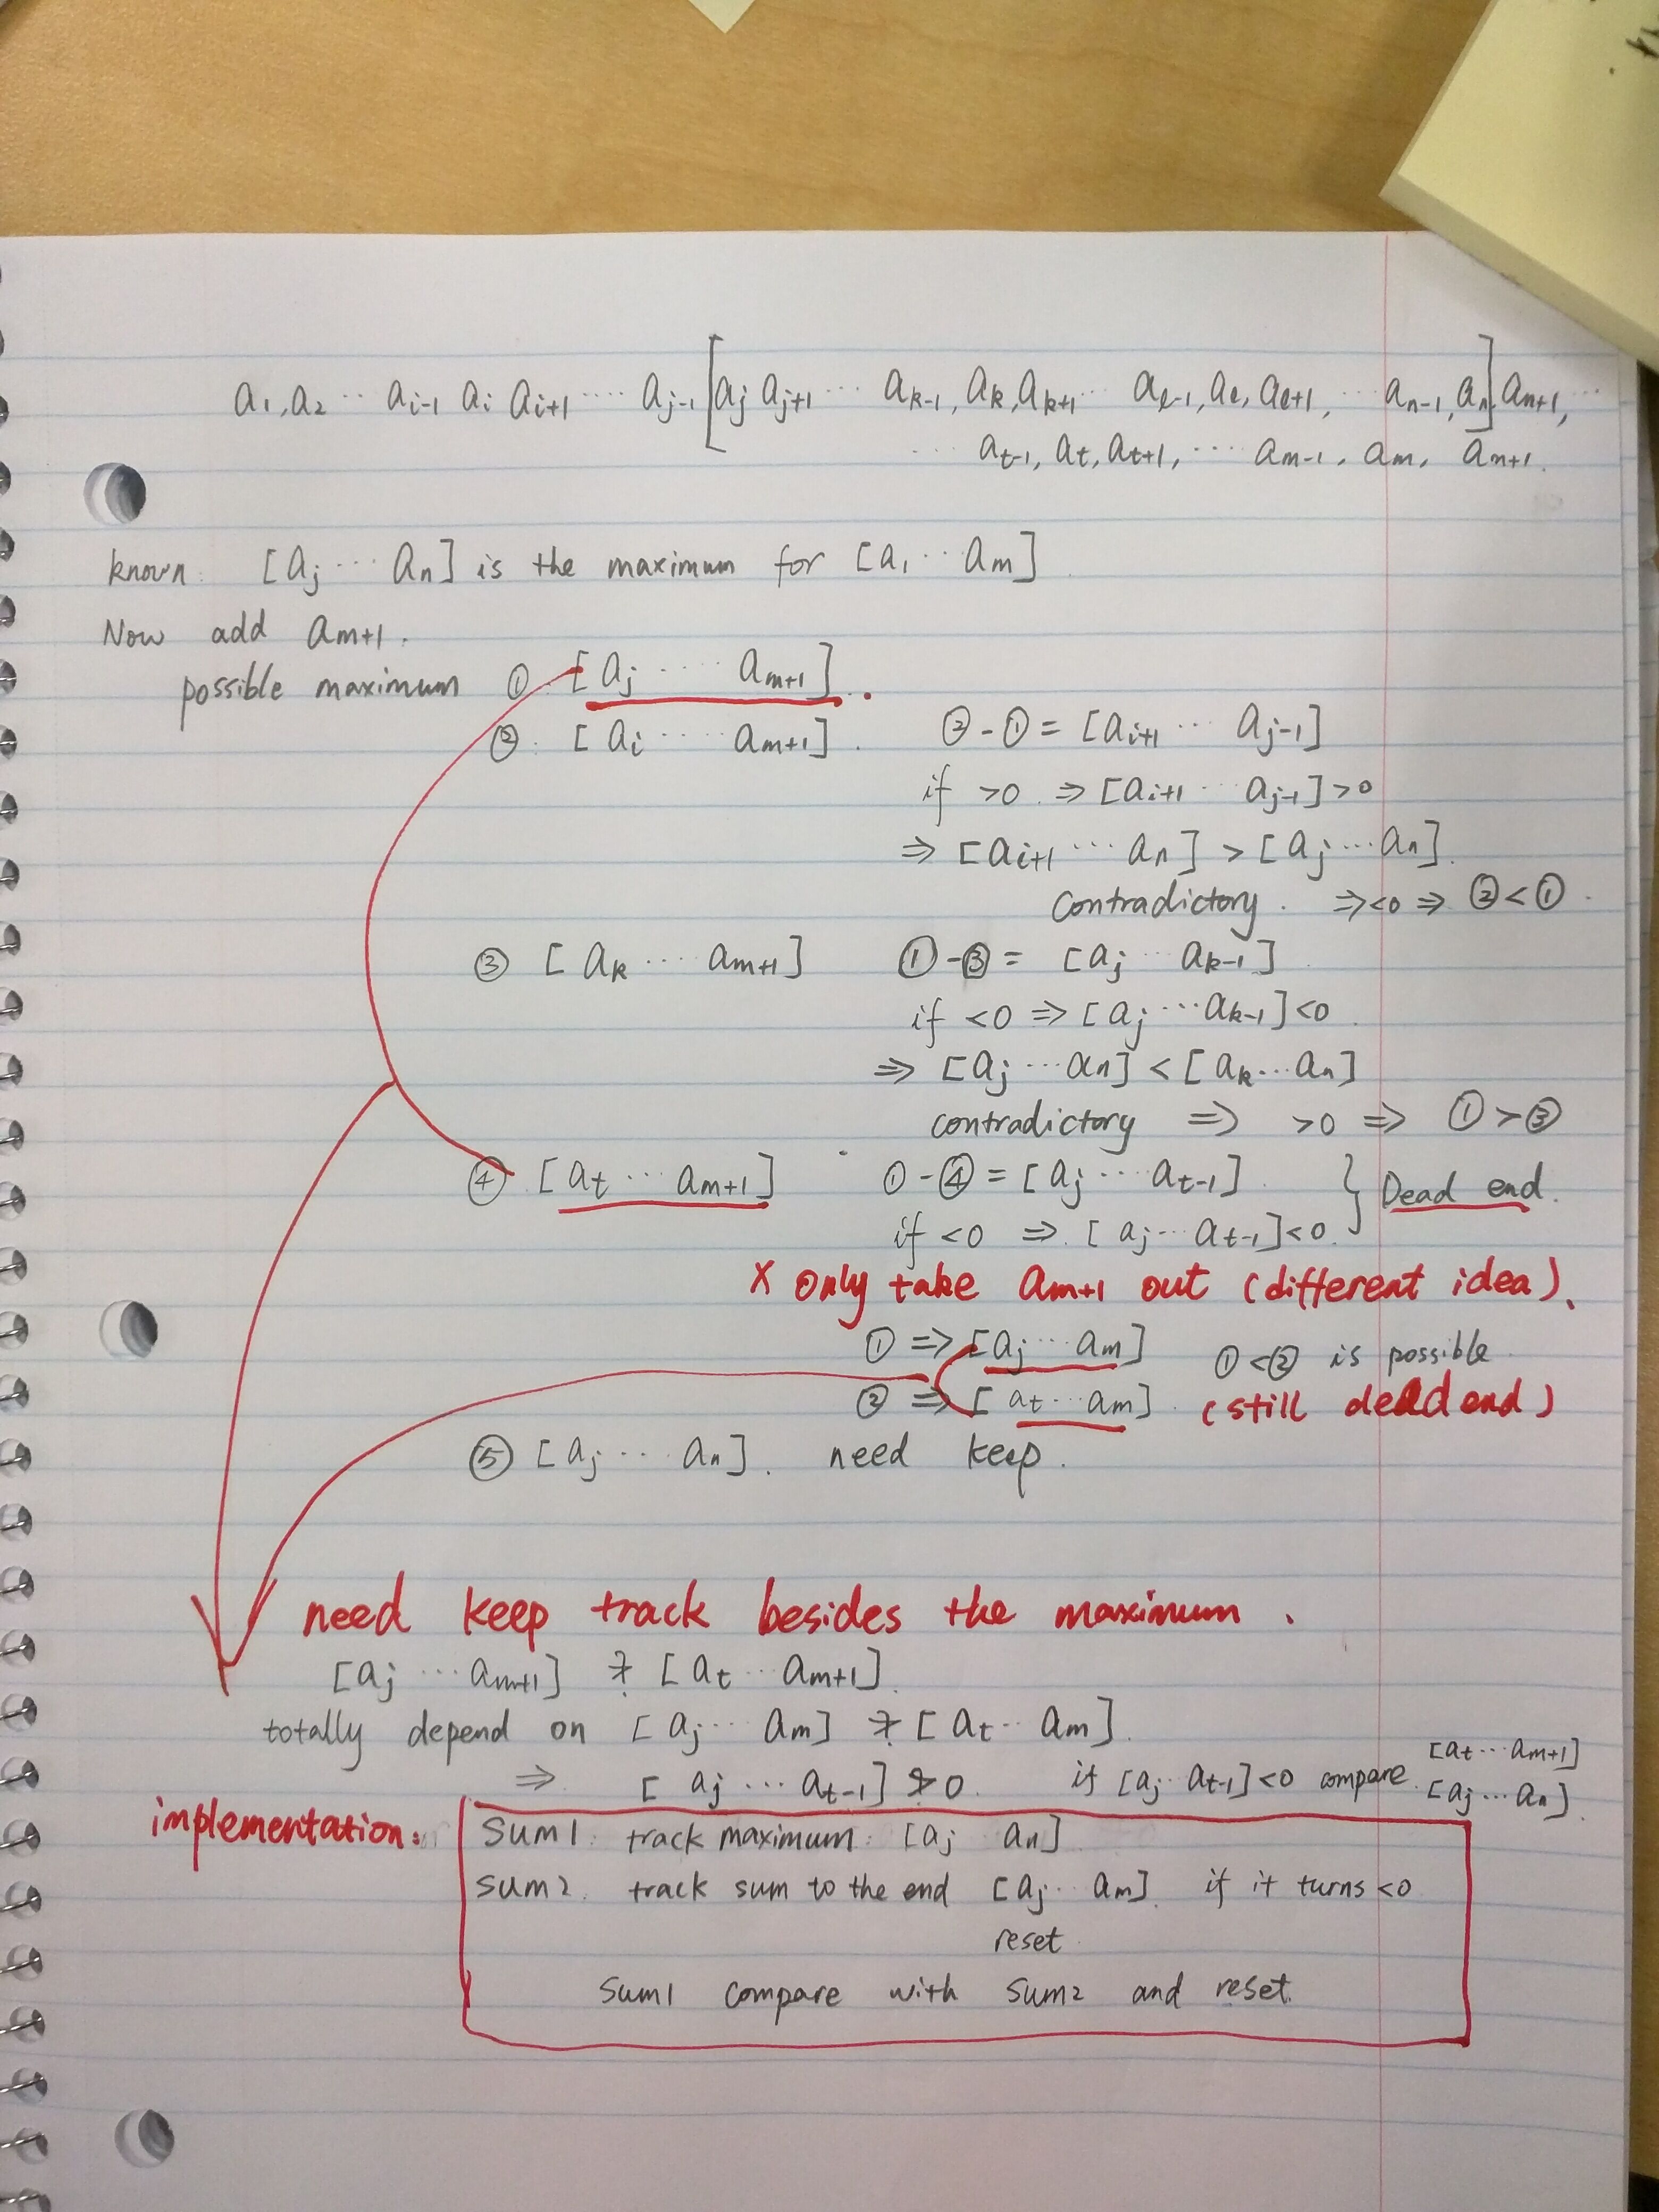 a1, a2 ·· ai-1 ai ai+1 ···· aj-1 [aj aj+1 ··· ak-1, ak, ak+1 ·· al-1, al, al+1, ·· an-1, an] an+1, ···
··· at-1, at, at+1, ··· am-1, am, am+1.
known: [aj ··· an] is the maximum for [a1 ··· am]
Now add am+1.
possible maximum ① [aj ···· am+1].
②. [ai ···· am+1]. ②-① = [ai+1 ··· aj-1]
if >0 ⇒ [ai+1 ··· aj-1]>0
⇒ [ai+1 ··· an] > [aj ··· an].
Contradictory. ⇒<0 ⇒ ②<①.
③ [ak ··· am+1] ①-③ = [aj ·· ak-1]
if <0 ⇒ [aj ··· ak-1]<0.
⇒ [aj ··· an] < [ak ··· an]
contradictory ⇒ >0 ⇒ ①>③
④ [at ··· am+1] ①-④ = [aj ··· at-1].
if <0 ⇒. [aj ··· at-1]<0. } Dead end.
x only take am+1 out (different idea).
① ⇒ [aj ··· am] ①<② is possible.
② ⇒ [at ·· am]. (still dead end)
⑤ [aj ··· an]. need keep.
need keep track besides the maximum.
[aj ··· am+1] ? [at ·· am+1].
totally depend on [aj ··· am] ? [at ·· am].
⇒ [aj ··· at-1] ? 0. if [aj ·· at-1]<0 compare [at ··· am+1]
[aj ··· an].
implementation:
Sum1. track maximum: [aj an]
Sum2. track sum to the end [aj ·· am]. if it turns <0
reset.
Sum1 compare with sum2 and reset.